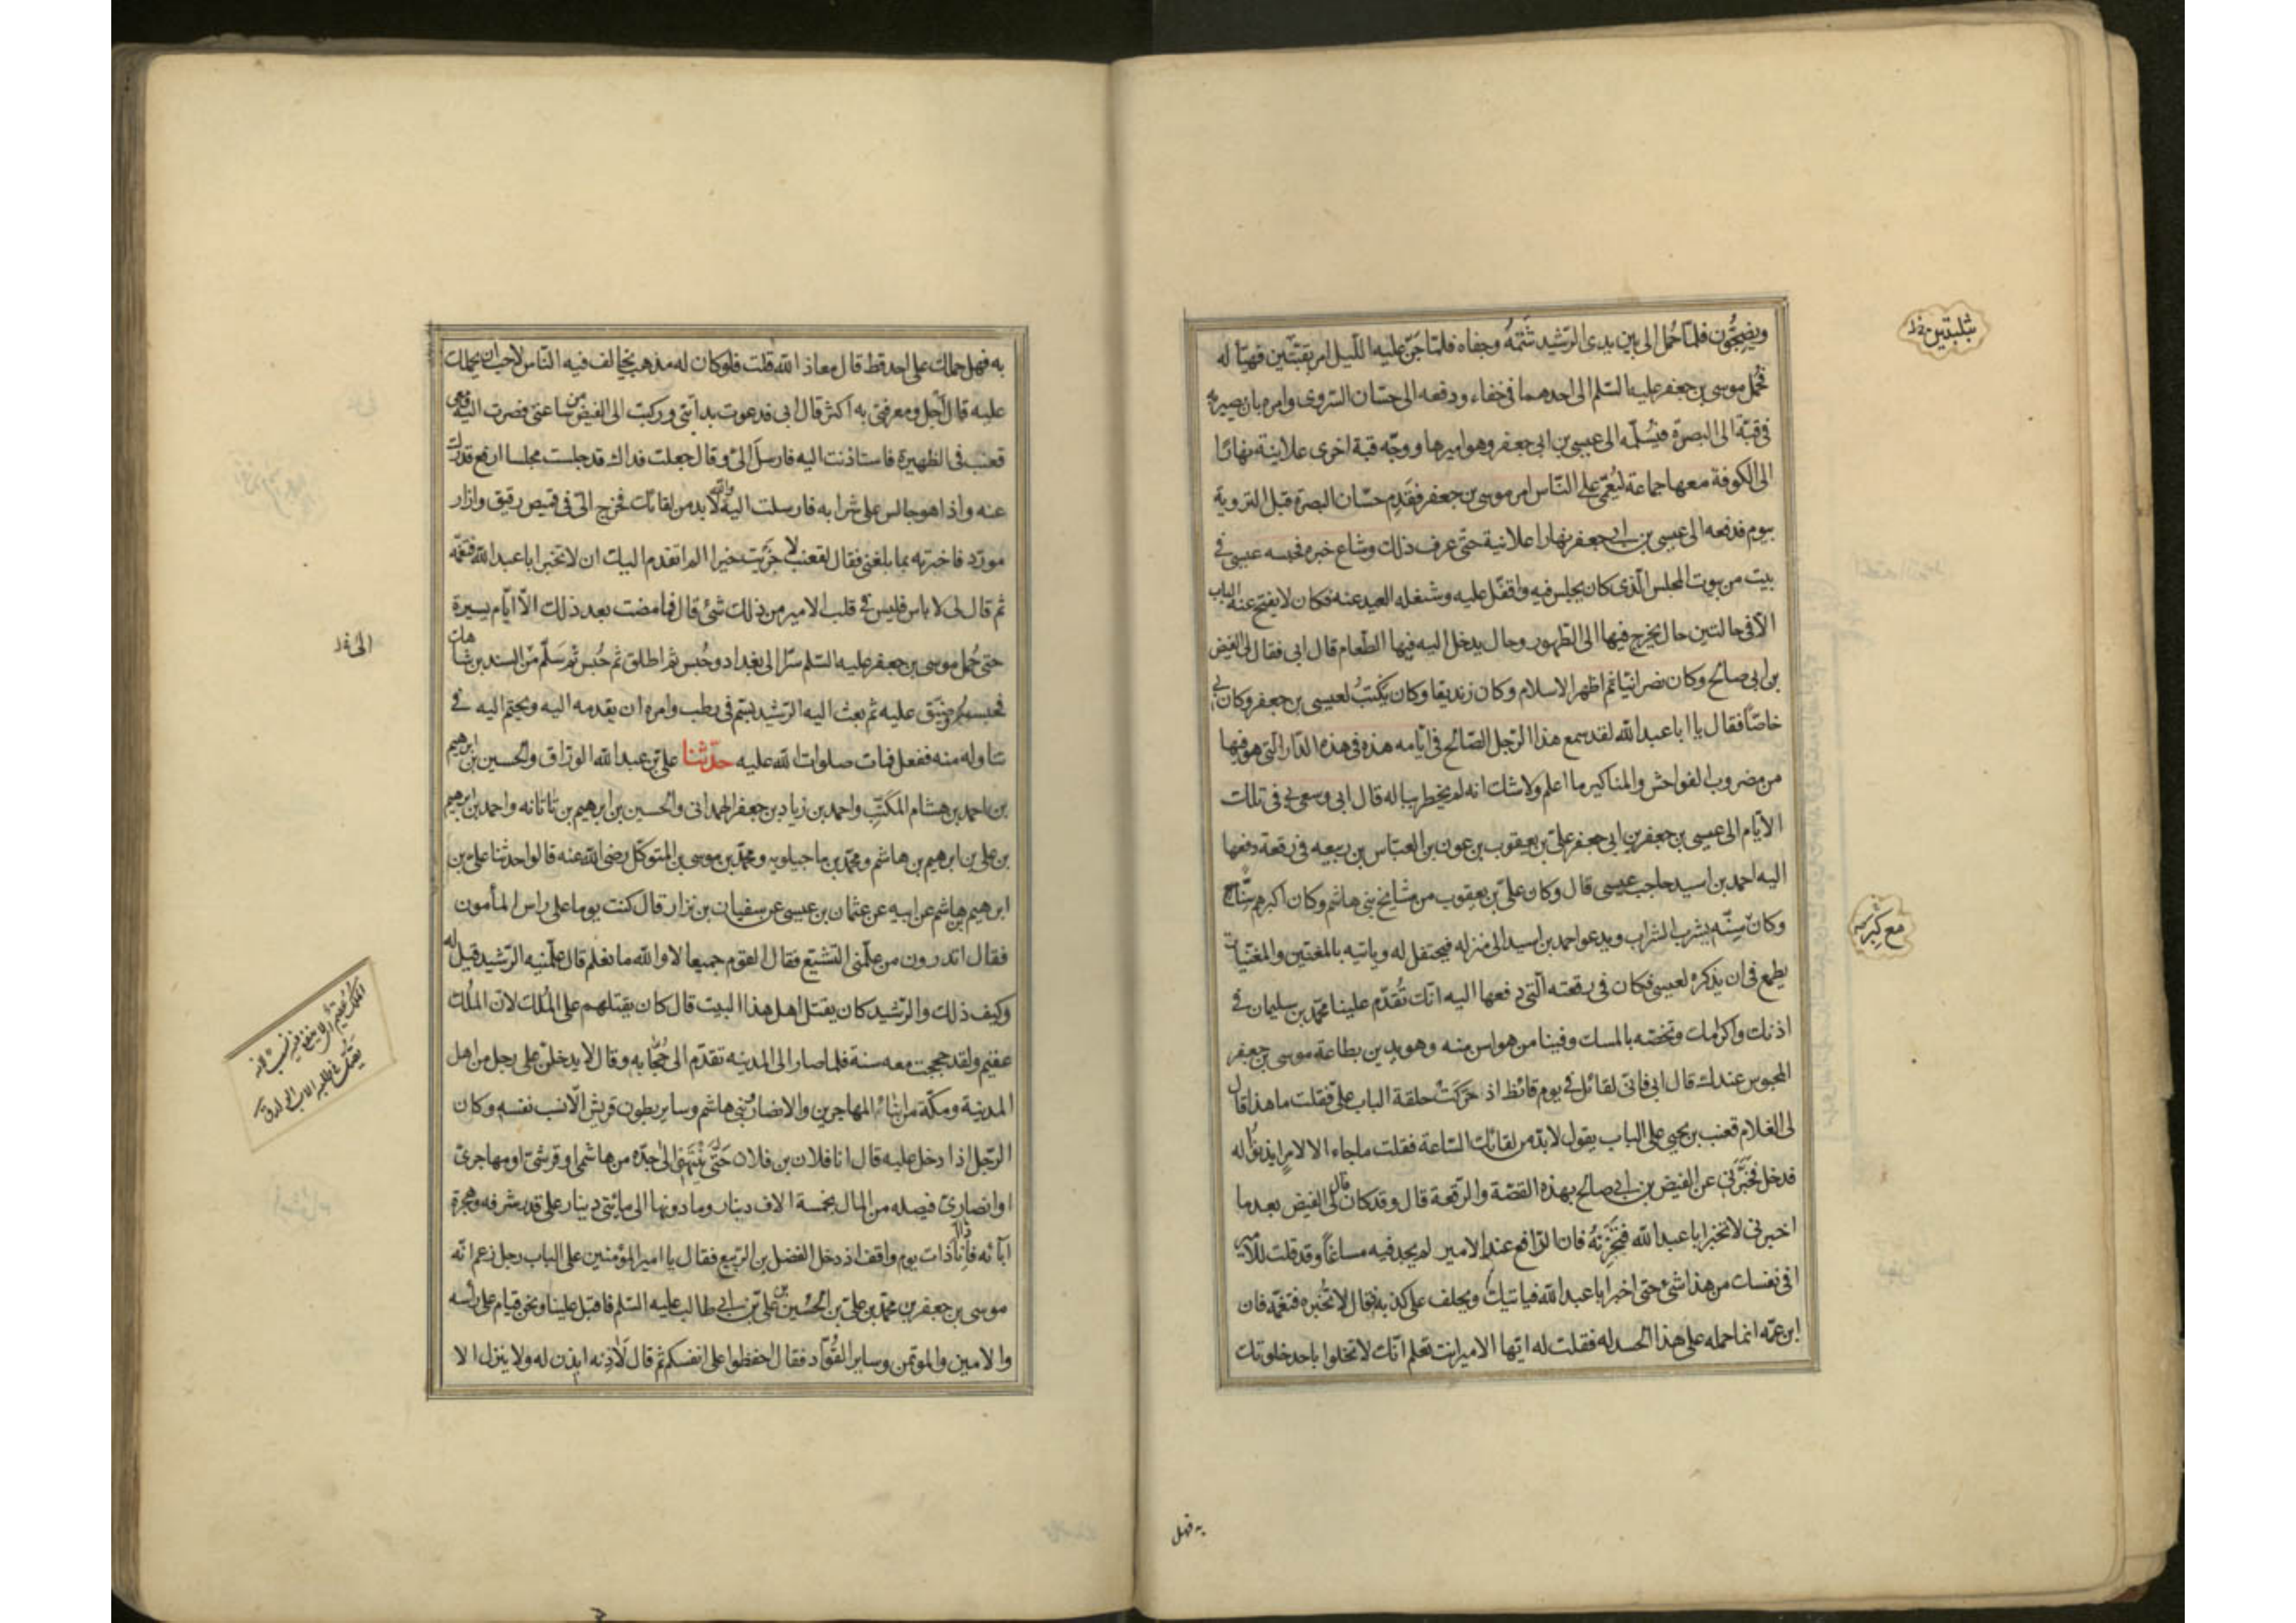 ويضجّون فلمّا حُمل الى بين يدى الرّشيد شَتَمَهُ وجفاه فلمّا جَنّ عليه اللّيل امر بقبّتين فهيّأ له
بقبتين خ ل
فحُمل موسى بن جعفر عليه السّلم الى احدهما فى خفاء ودفعه الى حسّان السّروى وامره بان يصير به
فى قبّة الى البصرة فيُسلّمه الى عيسى بن ابى جعفر وهو اميرها ووجّه قبة اخرى علانية نهارًا
الى الكوفة معها جماعة ليُعَمّى على النّاس امر موسى بن جعفر فقَدِم حسّان البصرة قبل التروية
بيوم فدفعه الى عيسى بن ابى جعفر نهارا علانية حتّى عرف ذلك وشاع خبره فحبسه عيسى فى
بيت من بيوت المجلس الّذى كان يجلس فيه واقفل عليه وشغله العيد عنه فكان لا يفتح عنه الباب
الّا فى حالتين حال يخرج فيها الى الطّهور وحال يدخل اليه فيها الطّعام قال ابى فقال لى الفيض
بن ابى صالح وكان نصرانيّا ثم اظهر الاسلام وكان زنديقا وكان يَكتبُ لعيسى بن جعفر وكان بى
خاصّاً فقال يا ابا عبد الله لقد سمع هذا الرّجل الصّالح فى ايّامه هذه فى هذه الدّار الّتى هو فيها
من ضروب الفواحش والمناكير ما اعلم ولا شك انه لم يخطر بباله قال ابى وسعى بى فى تلك
الأيّام الى عيسى بن جعفر بن ابى جعفر علىّ بن يعقوب بن عون بن العبّاس بن ربيعه فى رقعة دفعها
اليه احمد بن اسيد حاجب عيسى قال وكان علىّ بن يعقوب من مشايخ بنى هاشم وكان اكبرهم سنّا
وكان سِنّه يشرب الشراب ويدعو احمد بن اسيد الى منزله فيحتفل له وياتيه بالمغنّين والمغنّيات
مع كِبَر سنّه
يطمع فى ان يذكره لعيسى فكان فى رقعته الّتى دفعها اليه انّك تُقدّم علينا محمّد بن سليمان فى
اذنك واكرامك وتخصّه بالمسك وفينا من هو اسن منه وهو يدين بطاعة موسى بن جعفر
المحبوس عندك قال ابى فانّى لقائل فى يوم قائظ اذ حَرَكَتْ حلقة الباب علىّ فقلت ما هذا قال
لى الغلام قعنب بن يحيى على الباب يقول لا بدّ من لقائك السّاعة فقلت ما جاء الا لامرٍ ايذنوُا له
فدخل فخَبَّرَنى عن الفيض بن ابى صالح بهذه القصّة والرّقعة قال وقد كان قال لى الفيض بعد ما
اخبرنى لا تخبر ابا عبد الله فتُحَزِّنَهُ فان الرّافع عند الامير لم يجد فيه مساغاً وقد قلت للأمير
افى نفسك من هذا شئ حتى اخبر ابا عبد الله فياتيك ويحلف على كذبه فقال لا تخبره فتغمّه فان
ابن عمّه انما حمله على هذا الحسد له فقلت له ايّها الامير انت تعلم انّك لا تخلوا باحد خلوتك
به فهل
به فهل حملك على احد قط قال معاذ الله قلت فلو كان له مذهب يخالف فيه النّاس لاحب ان يحملك
عليه قال اَجَل ومعرفتى به اكثر قال ابى فدعوت بدابّتى وركبت الى الفيض من ساعتى فصرت اليه ومعى
قعنب فى الظهيرة فاستاذنت اليه فارسلَ الىّ وقال جعلت فداك قد جلست مجلسا ارفع قدرك
عنه واذا هو جالس على شرابه فارسلت اليه والله لا بد من لقائك فخرج الىّ فى قميص رقيق وازار
مورّد فاخبرته بما بلغنى فقال لقعنب لا جُزِيت خيرا الم اتقدم اليك ان لا تخبر ابا عبد الله فتغمّه
ثم قال لى لا باس فليس فى قلب الامير من ذلك شئ قال فما مضت بعد ذلك الّا ايّام يسيرة
حتى حُمل موسى بن جعفر عليه السّلم سرّا الى بغداد وحُبس ثم اطلق ثم حُبس ثم سَلّم من السند بن شاهك
الى خ ل
فحبسه وضيّق عليه ثم بعث اليه الرّشيد بسّم فى رطب وامره ان يقدمه اليه ويحتم اليه فى
تناوله منه ففعل فمات صلوات الله عليه حدّثنا علىّ بن عبد الله الورّاق والحسين بن ابرهيم
بن احمد بن هشام المكتّب واحمد بن زياد بن جعفر الهمدانى والحسين بن ابرهيم بن تاتانه واحمد بن ابرهيم
بن على بن ابرهيم بن هاشم ومحمّد بن ماجيلويه ومحمّد بن موسى بن المتوكّل رضى الله عنه قالوا حدثنا علىّ بن
ابرهيم بن هاشم عن ابيه عن عثمان بن عيسى عن سفيان بن نزار قال كنت يوما على راس المأمون
فقال اتدرون من علّمنى التشيّع فقال القوم جميعا لا والله ما نعلم قال علّمنيه الرّشيد قيل له
وكيف ذلك والرّشيد كان يقتل اهل هذا البيت قال كان يقتلهم على المُلك لانّ المُلك
عقيم ولقد حججت معه سنة فلما صار الى المدينه تقدّم الى حُجّابه وقال لا يدخلنّ على رجل من اهل
المدينة ومكّة من ابناء المهاجرين والانصار بنى هاشم وساير بطون قريش الّا نسب نفسه وكان
الرّجل اذا دخل عليه قال انا فلان بن فلان حَتّى يَنْتَهِىَ الى جدّه من هاشمى او قرشىّ او مهاجرىّ
او انصارىّ فيصله من المال بخمسة الاف دينار وما دونها الى مائتى دينار على قدر شرفه وهجرة
آبائه فانا ذات يوم واقف اذ دخل الفضل بن الرّبيع فقال يا امير المؤمنين على الباب رجل زعم انّه
موسى بن جعفر بن محمّد بن علىّ بن الحُسَين بن علىّ بن ابى طالب عليه السّلم فاقبل علينا ونحن قيام على رأسه
والامين والموتمن وساير القُوّاد فقال احفظوا على انفسكم ثم قال لآذِنه ايذن له ولا ينزل الا